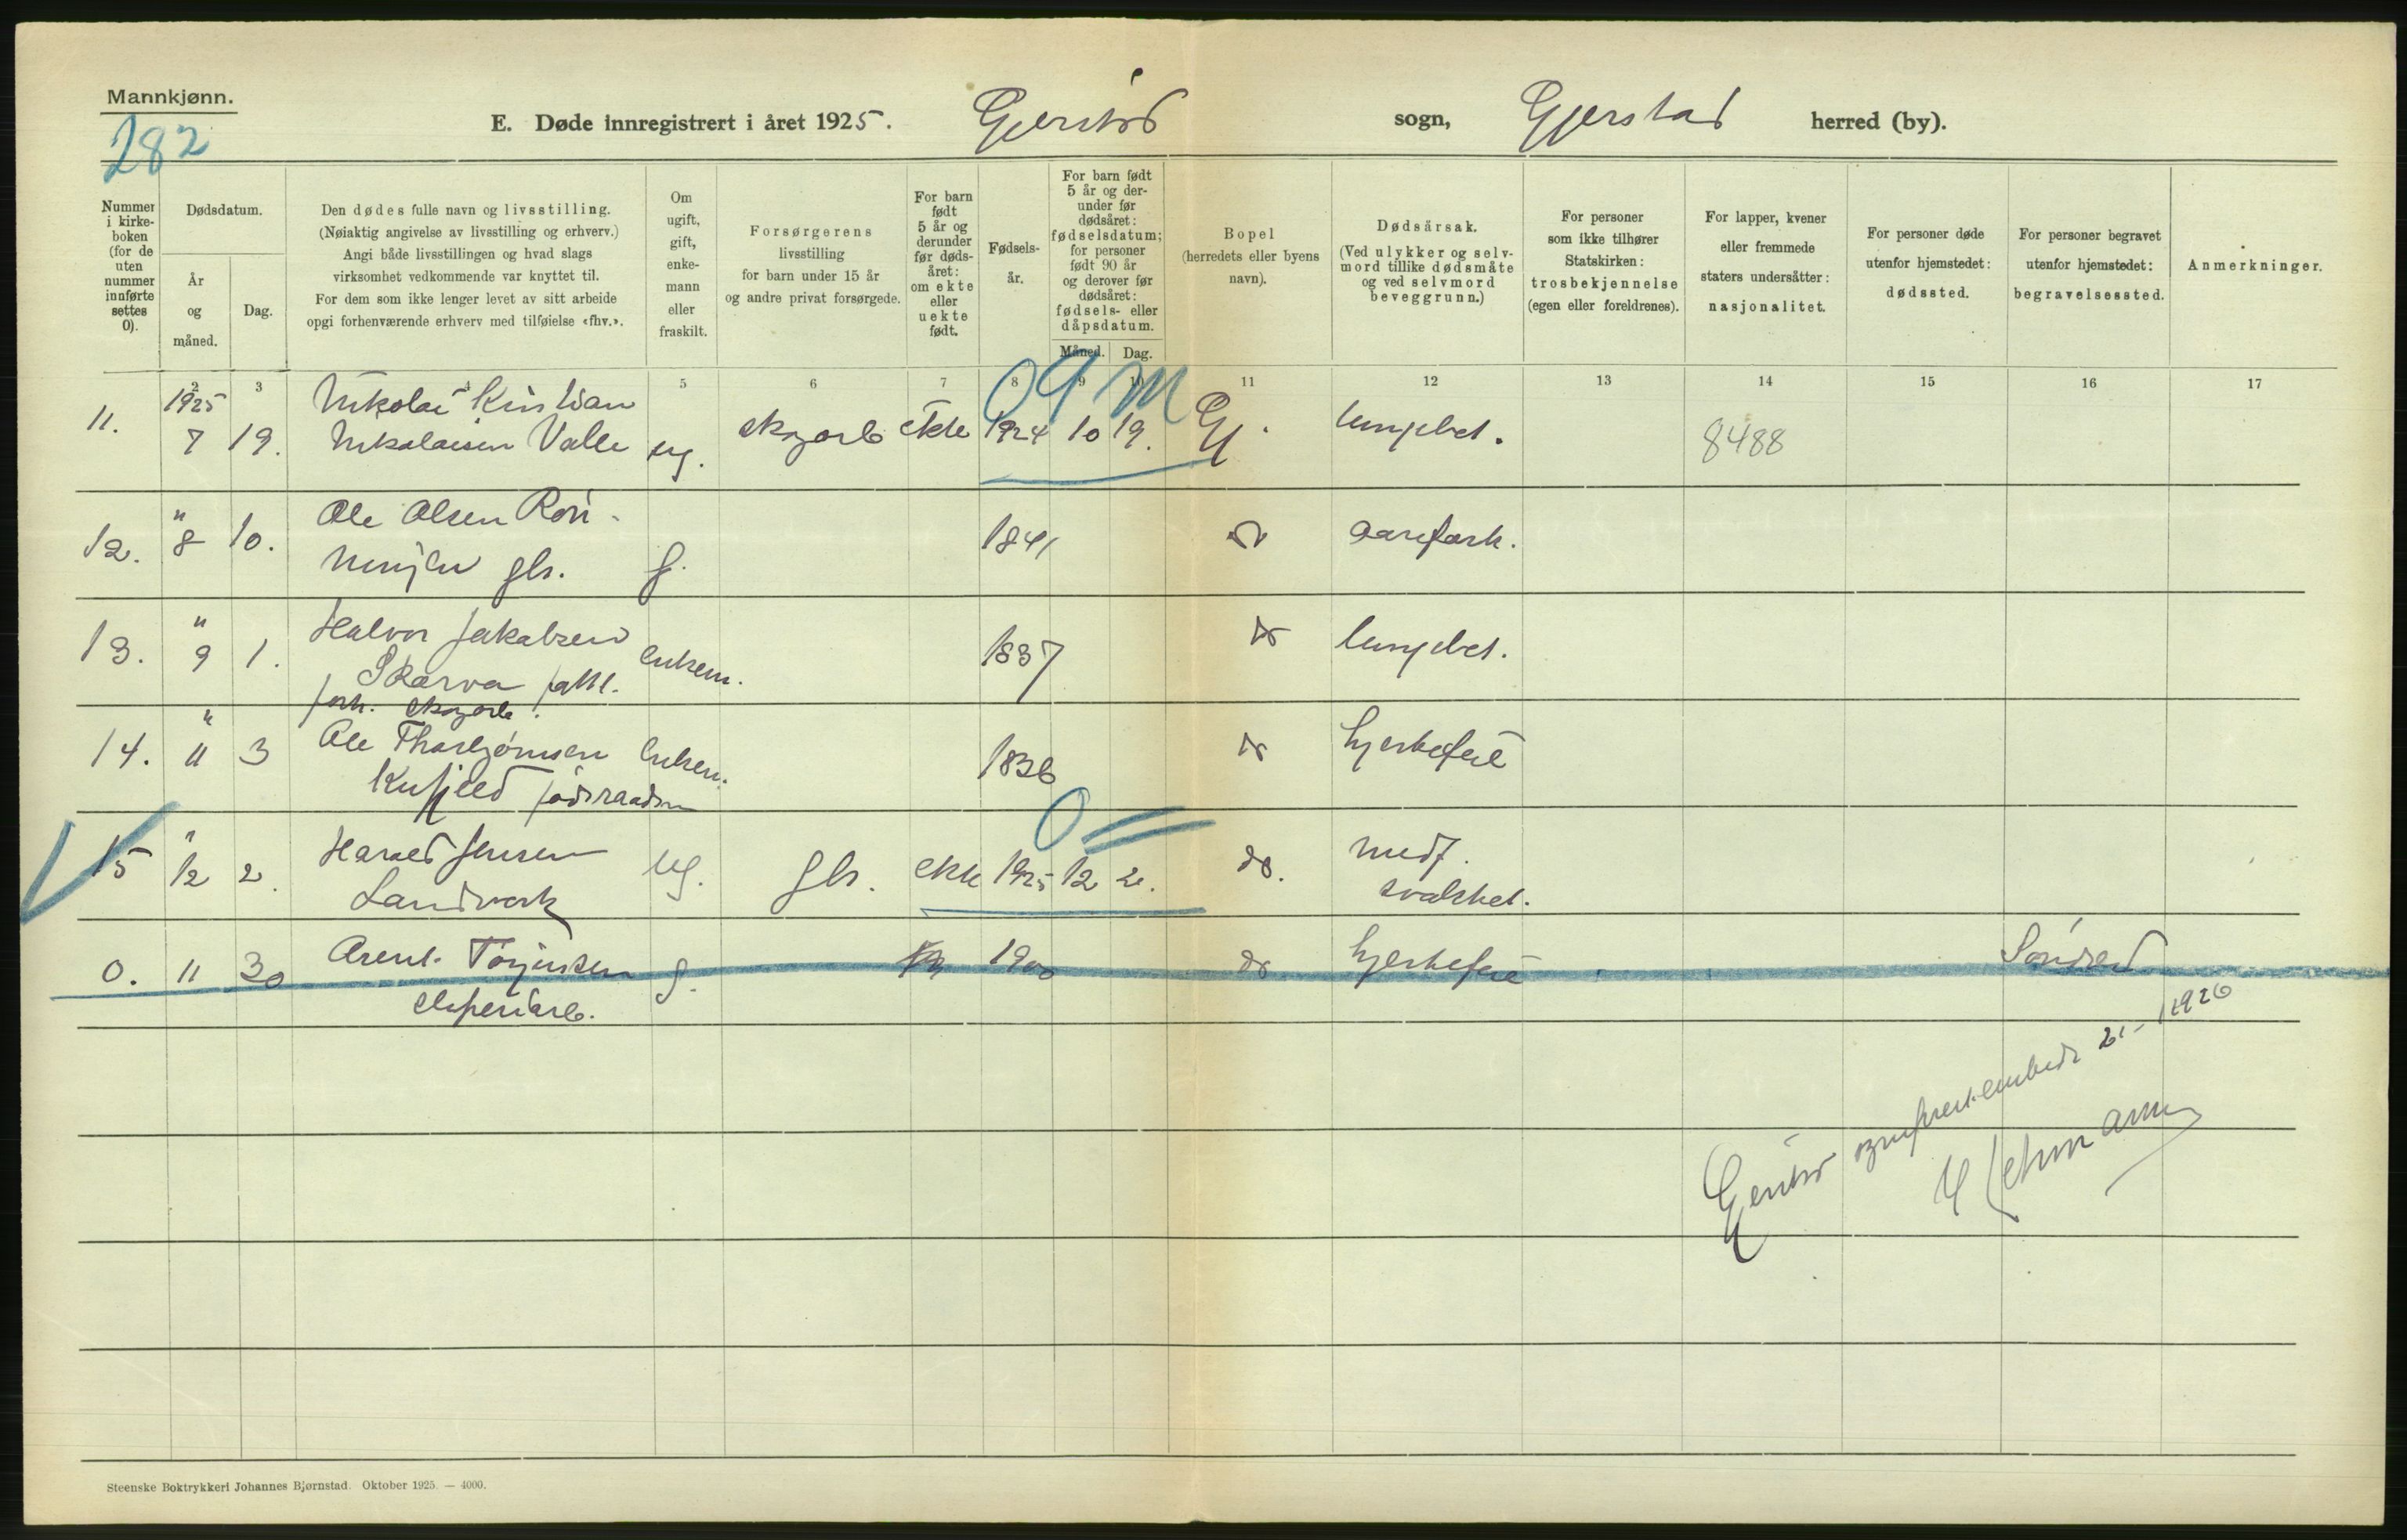 Mannkjønn.
282
E. Døde innregistrert i året 1925. Gjerstad sogn, Gjerstad herred (by).
Nummer i kirkeboken (for de uten nummer innførte settes 0).
Dødsdatum.
År og måned.
Dag.
Den dødes fulle navn og livsstilling.
(Nøiaktig angivelse av livsstilling og erhverv.)
Angi både livsstillingen og hvad slags
virksomhet vedkommende var knyttet til.
For dem som ikke lenger levet av sitt arbeide
opgi forhenværende erhverv med tilføielse «fhv.».
Om ugift, gift, enkemann eller fraskilt.
Forsørgerens
livsstilling
for barn under 15 år
og andre privat forsørgede.
For barn født 5 år og derunder før dødsåret: om ekte eller uekte født.
Fødselsår.
For barn født 5 år og derunder før dødsåret: fødselsdatum; for personer født 90 år og derover før dødsåret: fødsels- eller dåpsdatum.
Måned. Dag.
Bopel
(herredets eller byens
navn).
Dødsårsak.
(Ved ulykker og selvmord tillike dødsmåte og ved selvmord beveggrunn.)
For personer
som ikke tilhører
Statskirken:
trosbekjennelse
(egen eller foreldrenes).
For lapper, kvener
eller fremmede
staters undersåtter:
nasjonalitet.
For personer døde
utenfor hjemstedet:
dødssted.
For personer begravet
utenfor hjemstedet:
begravelsessted.
Anmerkninger.
2 3 4 5 6 7 8 9 10 11 12 13 14 15 16 17
09 M
11. 1925 7 19. Nikolai Kristian
Nikolaisen Valle ug. skogarb ekte 1924 10 19. Gj. lungebet. 8488
12. " 8 10. Ole Olsen Røi-
ningen gbr. g. 1841 do aarefork.
13. " 9 1. Halvor Jakobsen
Skarva fatt. enkem. 1837 do lungebet.
forh. skogarb.
14. " 11 3 Ole Thorbjørnsen enkem. 1836 do hjertefeil
15 " 12 2. Harald Jensen
Landverk ug. gbr. ekte 1925 12 2. do. medf.
svakhet.
0. 11 30 Arent Torjussen g. 1900 do hjertefeil Søndeled
Gjerstad sogneprestembede 21-1 1926